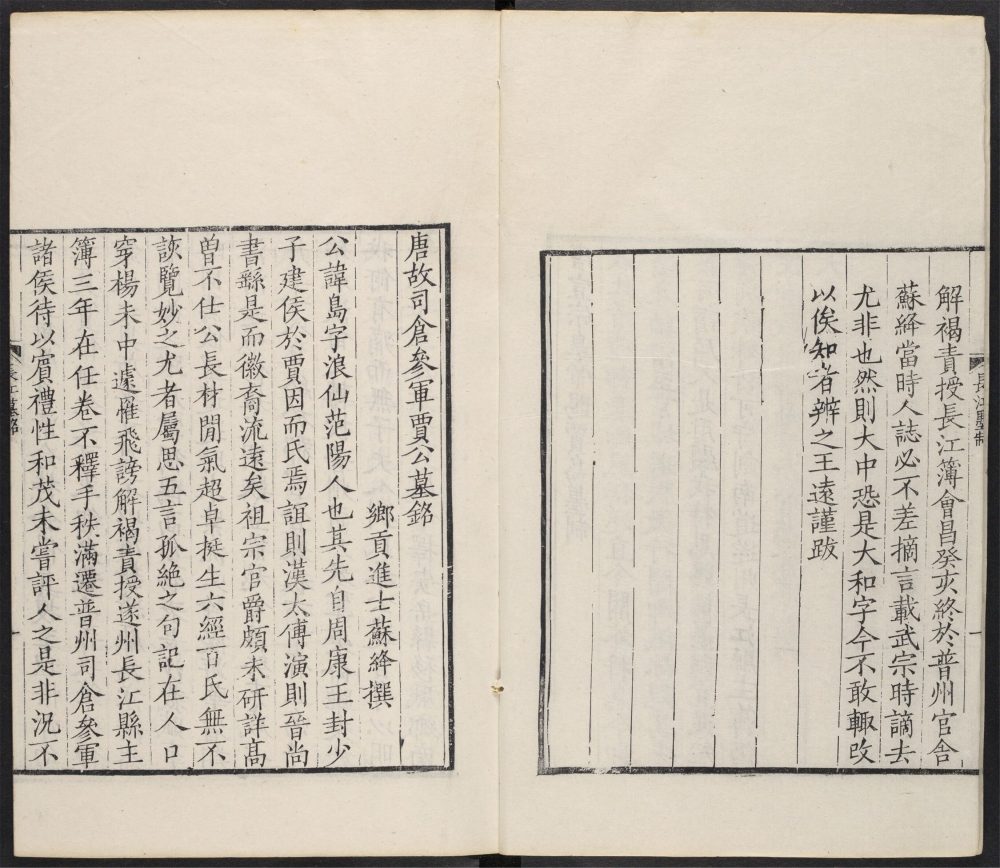 解褐責授長江簿會昌癸亥終於普州官舍
蘇絳當時人誌必不差摘言載武宗時謫去
尤非也然則大中恐是大和字今不敢輙改
以俟知者辨之王遠謹跋
長江墨制
一
唐故司倉參軍賈公墓銘
鄉貢進士蘇絳撰
公諱島字浪仙范陽人也其先自周康王封少
子建侯於賈因而氏焉誼則漢太傅演則晉尚
書繇是而徽裔流遠矣祖宗官爵頗未研詳髙
曾不仕公長材閒氣超卓挺生六經百氏無不
該覽妙之尤者屬思五言孤絶之句記在人口
穿楊未中遽罹飛謗解褐責授遂州長江縣主
簿三年在任卷不釋手秩滿遷普州司倉參軍
諸侯待以賓禮性和茂未嘗評人之是非況不
長江墓銘
一